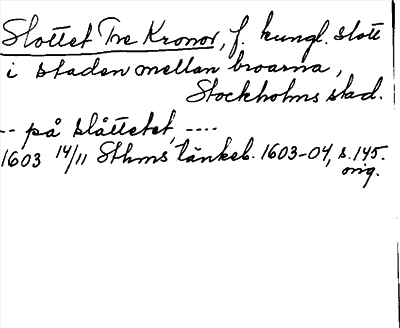 Slottet Tre Kronor, f. kungl. slott
i staden mellan broarna,
Stockholms stad.
-- på slåttetet, ----
1603 14/11 Sthms tänkeb. 1603-04, s. 145.
orig.